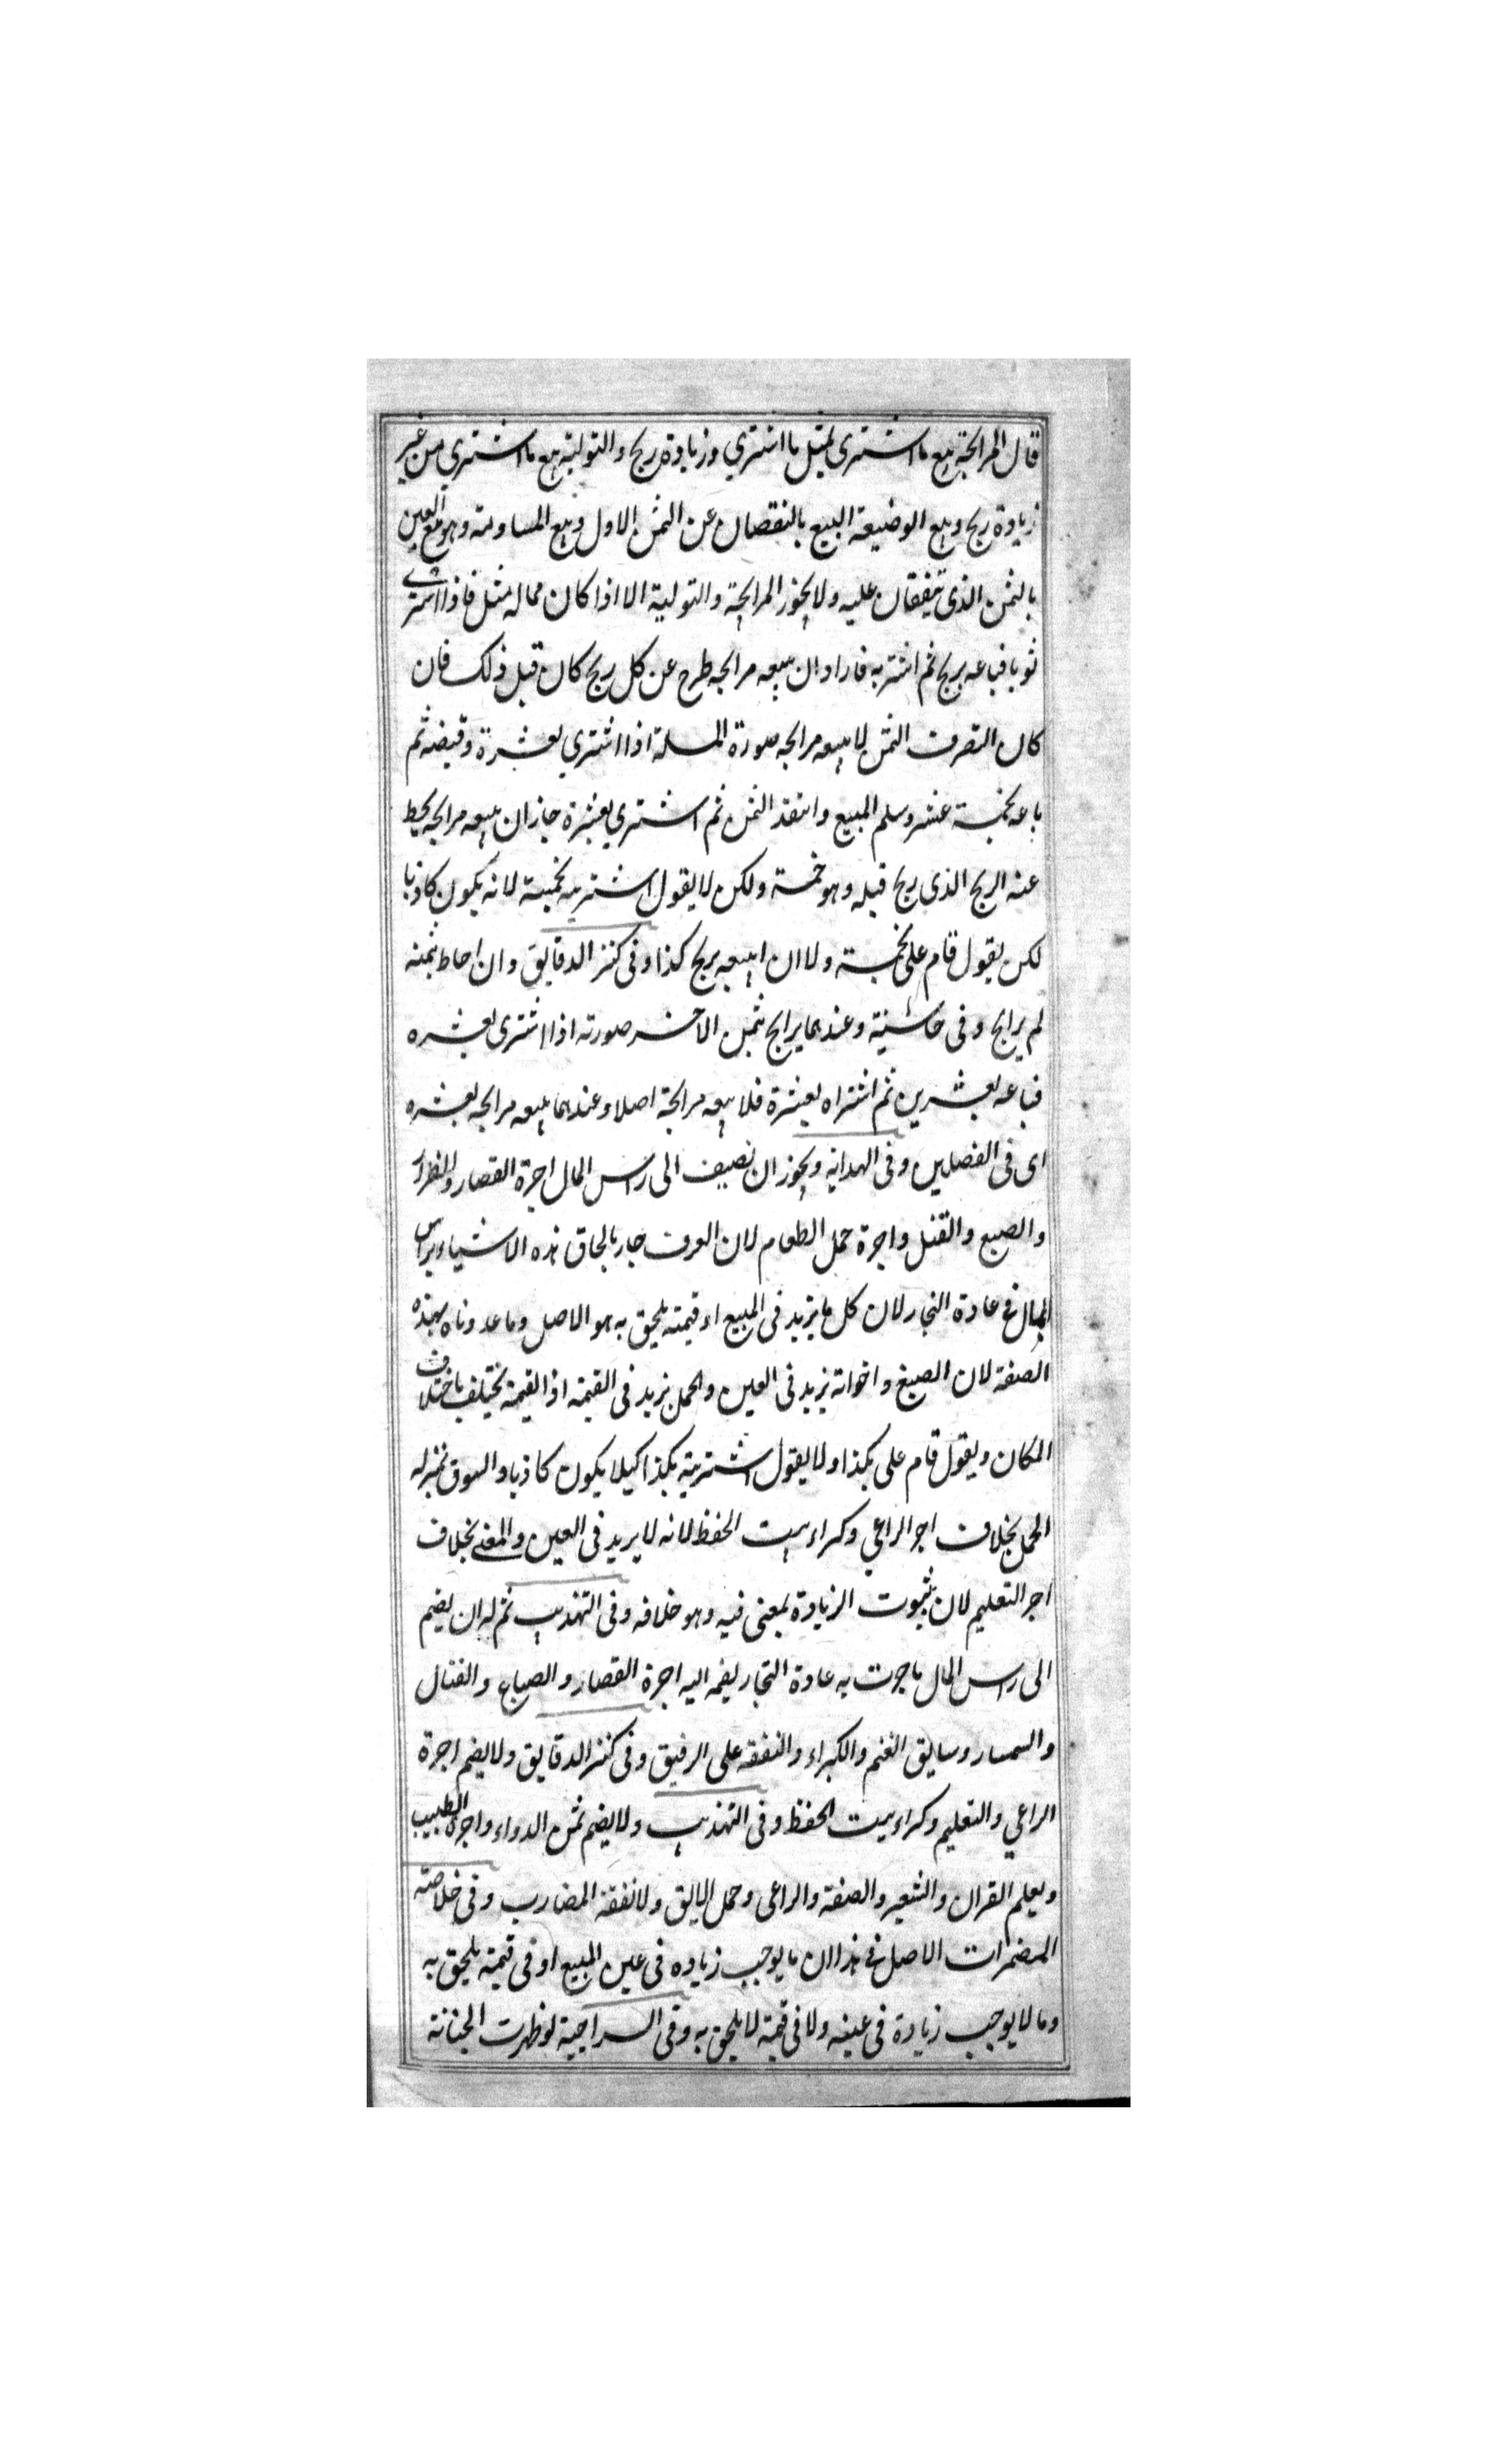 قال المرابحة بيع ما اشترى بمثل ما اشتري وزيادة ربح والتولية بيع ما اشتري من غير
زيادة ربح وبيع الوضيعة البيع بالنقصان عن الثمن الاول وبيع المساومة وهو بيع العين
بالثمن الذى يتفقان عليه ولا يجوز المرابحة والتولية الا اذا كان مما له مثل فاذا اشترى
ثوبا فباعه بربح ثم اشتريه فاراد ان يبيعه مرابحه طرح عن كل ربح كان قبل ذلك فان
كان التصرف الثمن لا يبيعه مرابحه صورة المسلة اذا اشتري بعشرة وقبضه ثم
باعه بخمسة عشر وسلم المبيع وانتقد الثمن ثم اشتري بعشرة جاز ان يبيعه مرابحه يحط
عنه الربح الذى ربح قبله وهو خمسة ولكن لا يقول اشتريته بخمسة لانه يكون كاذبا
لكن يقول قام على بخمسة ولا ان ابيعه بربح كذا وفى كنز الدقايق وان احاط بثمنه
لم يرابح وفى حاشية وعندهما يرابح بثمن الاخر صورته اذا اشترى بعشره
فباعه بعشرين ثم اشتراه بعشرة فلا يبيعه مرابحة اصلا وعندهما يبيعه مرابحه بعشره
اى فى الفصلين وفى الهدايه ويجوز ان يضيف الى راس المال اجرة القصار والطراز
والصبع والفتل واجرة حمل الطعام لان العرف جار بالحاق هذه الاشياء براس
المال فى عادة التجار لان كل ما يزيد فى المبيع او قيمته يلحق به هو الاصل وما عددناه بهذه
الصفة لان الصبغ واخواته يزيد فى العين والحمل يزيد فى القيمة اذ القيمة يختلف باختلاف
المكان ويقول قام على بكذا ولا يقول اشتريته بكذا كيلا يكون كاذبا والسوق بمنزله
الحمل بخلاف اجر الراعي وكراء بيت الحفظ لانه لا يزيد فى العين والمعنى بخلاف
اجر التعليم لان ثبوت الزيادة لمعنى فيه وهو خلافه وفى التهذيب ثم له ان يضم
الى راس المال ما جرت به عادة التجار يضمه اليه اجرة القصار والصباغ والفتال
والسمسار وسايق الغنم والكراء والنفقه على الرقيق وفى كنز الدقايق ولا يضم اجرة
الراعي والتعليم وكراء بيت الحفظ وفى التهذيب ولا يضم ثمن الدواء واجرة الطبيب
ويعلم القران والشعير والصفة والراعى وحمل الابق ولا نفقة المضارب وفى خلاصة
المضمرات الاصل فى هذا ان ما يوجب زياده فى عين المبيع او فى قيمته يلحق به
وما لا يوجب زيادة فى عينه ولا فى قيمة لا يلحق به وفى السراجية لو ظهرت الخيانة